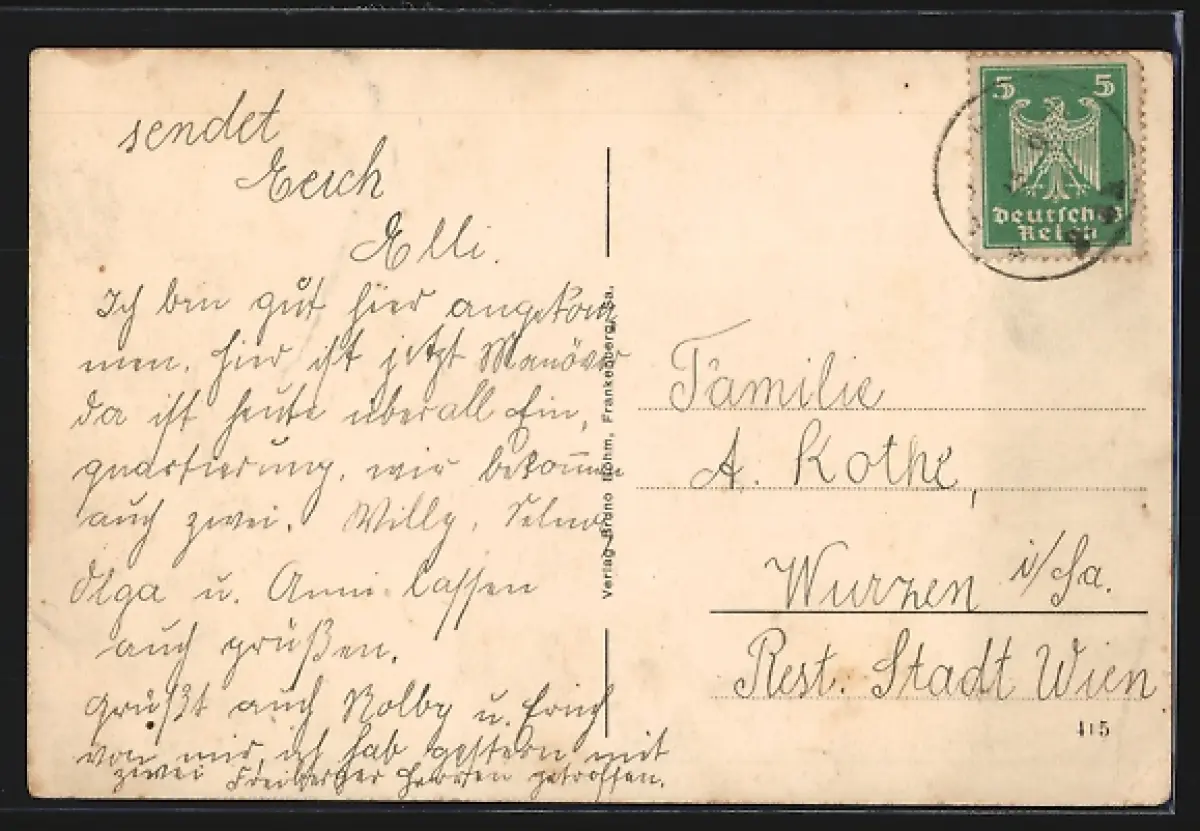 sendet
Euch
Elli.
Ich bin gut hier angekom
men. hier ist jetzt Manöver
da ist heute überall Ein,
quartierung. wir bekom̄en
auch zwei. Willy,
Olga u. Anni lassen
auch grüßen.
Grüßt auch u. Erich
von mir, ich hab gestern mit
zwei Freiberger Herren getroffen.
Verlag Bruno Böhm, Frankenberg, Sa.
5 5
Deutsches
Reich
Familie
A. Kothe,
Wurzen i/Sa.
Rest. Stadt Wien
415